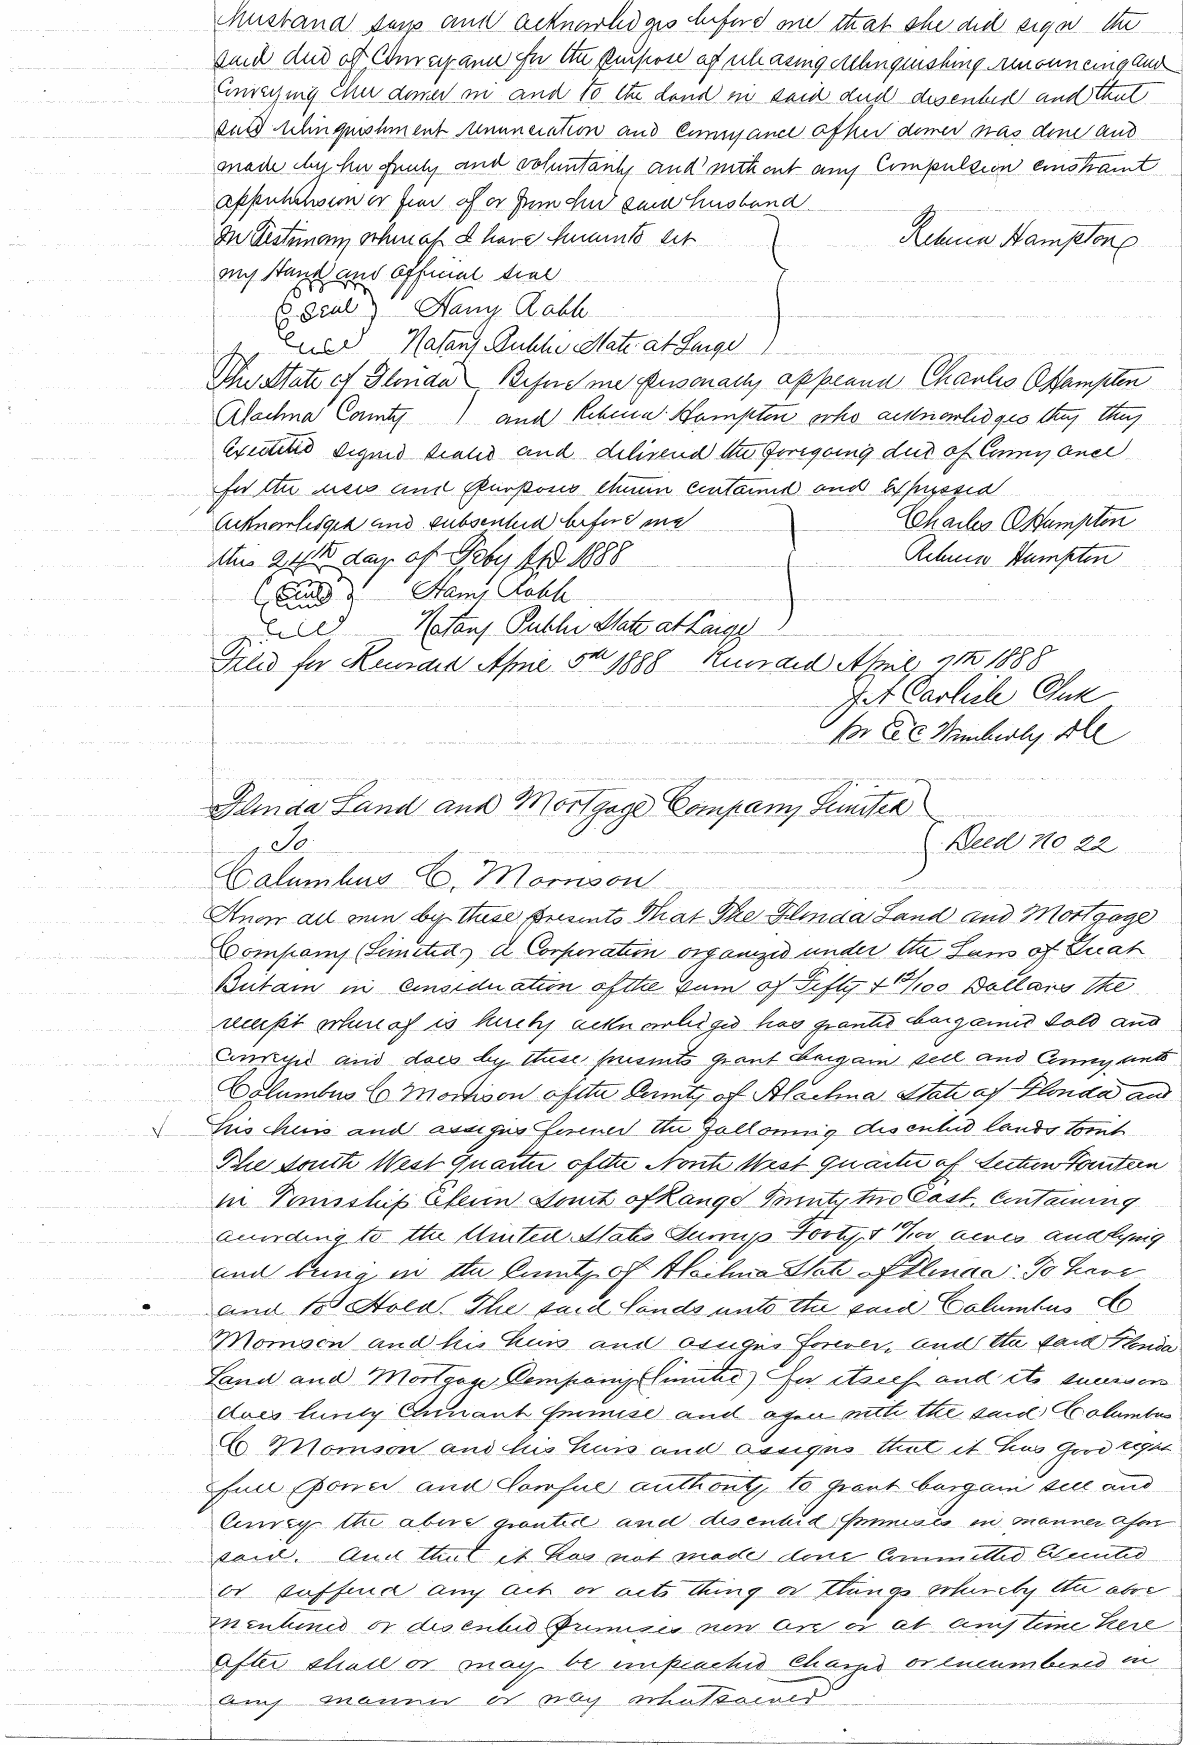 Husband says and acknowledges before me that she did sign the
said deed of Conveyance for the purpose of releasing relinquishing renouncing and
Conveying her dower in and to the land in said deed described and that
said relinquishment renunciation and conveyance of her dower was done and
made by her freely and voluntarily and without any Compulsion constraint
apprehension or fear of or from her said husband
In Testimony whereof I have hereunto set
Rebecca Hampton
my Hand and official seal
(Seal) Harry Rabb
Notary Public State at Large
The State of Florida Before me personally appeared Charles O Hampton
Alachua County and Rebecca Hampton who acknowledges they they
Executed signed sealed and delivered the foregoing deed of Conveyance
for the uses and purposes therein contained and Expressed
Acknowledged and subscribed before me Charles O Hampton
this 24th day of Feby AD 1888 Rebecca Hampton
(Seal) Harry Rabb
Notary Public State at Large
Filed for Recorded April 5th 1888 Recorded April 7th 1888
J A Carlisle Clerk
pr E C Wimberly D C
Florida Land and Mortgage Company Limited
To Deed no 22
Columbus C. Morrison
Know all men by these presents That The Florida Land and Mortgage
Company (Limited) A Corporation organized under the Laws of Great
Britain in consideration of the sum of Fifty + 13/100 Dollars the
receipt whereof is hereby acknowledged has granted bargained sold and
conveyed and does by these presents grant bargain sell and Convey unto
Columbus C Morrison of the County of Alachua State of Florida and
his heirs and assigns forever the following described lands towit
The South West quarter of the North West quarter of Section Fourteen
in Township Eleven South of Range Twenty two East, Containing
according to the United States Survey Forty + 10/100 acres and lying
and being in the County of Alachua State of Florida. To have
and to Hold. The said lands unto the said Columbus C
Morrison and his heirs and assigns forever, and the said Florida
Land and Mortgage Company (Limited) for itself and its successors
does hereby Covenant promise and agree with the said Columbus
C Morrison and his heirs and assigns that it has good right
full power and lawful authority to grant bargain sell and
Convey the above granted and described premises in manner afore
said. And that it has not made done Committed Executed
or suffered any act or acts thing or things whereby the above
mentioned or described premises now are or at any time here
after shall or may be impeached Charged or encumbered in
any manner or way whatsoever